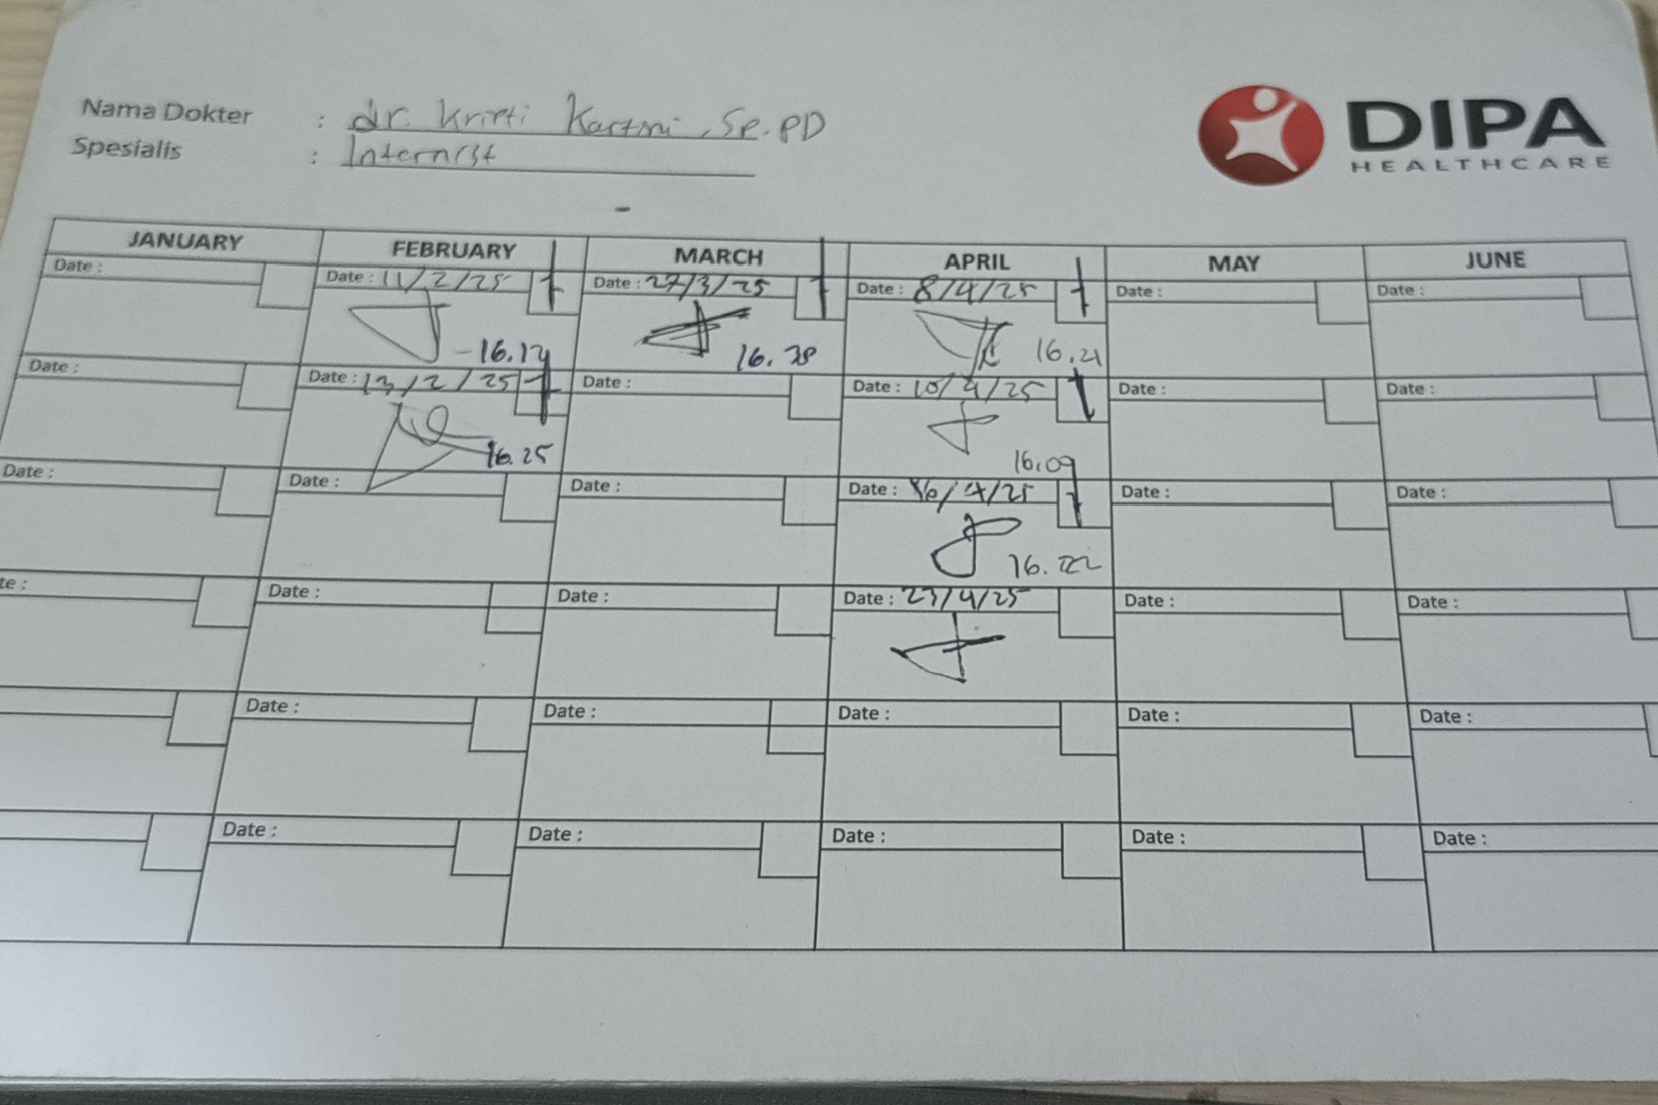 Nama Dokter : dr. Kristi Kartini, Sp.PD
Spesialis : Internist
DIPA
HEALTHCARE
JANUARY FEBRUARY MARCH APRIL MAY JUNE
Date : Date : 11/2/25 Date : 27/3/25 Date : 8/4/25 Date : Date :
16.38 16.21
Date : Date : 13/2/25 Date : Date : 10/4/25 Date : Date :
16.25 16.09
Date : Date : Date : Date : 16/4/25 Date : Date :
16.22
te : Date : Date : Date : 23/4/25 Date : Date :
Date : Date : Date : Date : Date :
Date : Date : Date : Date : Date :